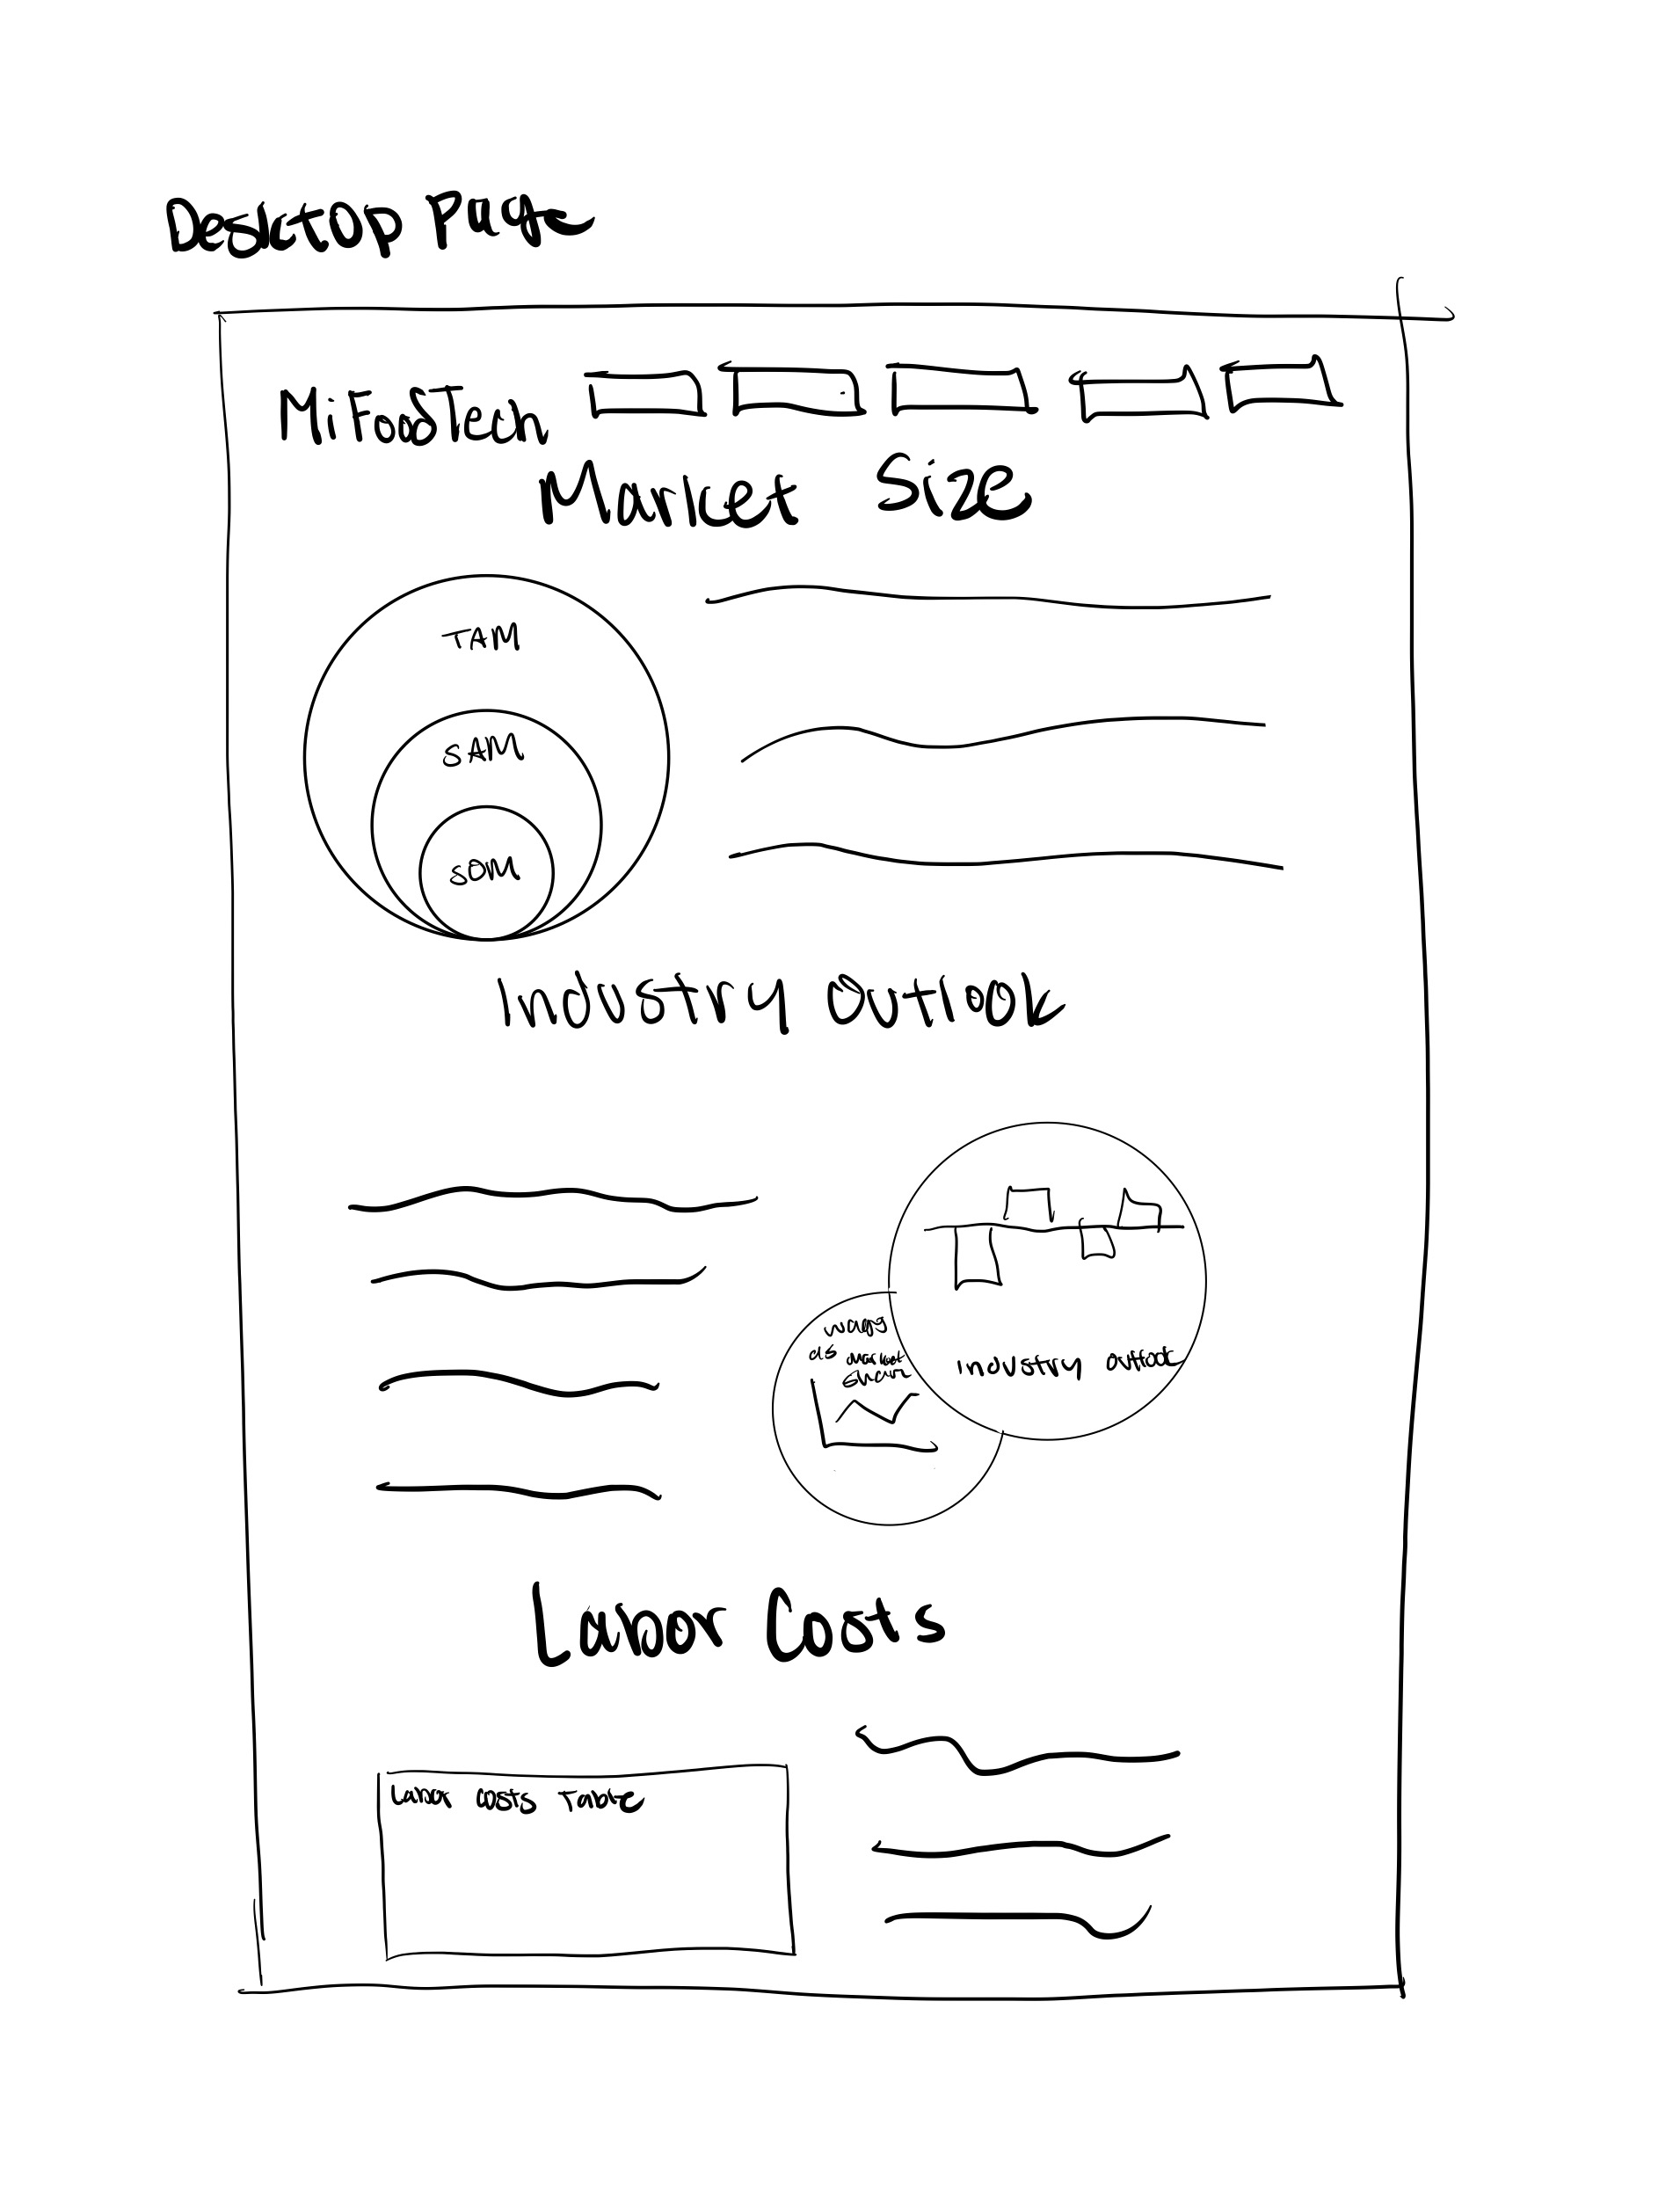 Desktop Page
MitoSTech
Market Size
TAM
SAM
SOM
Industry Outlook
wages
as market
share
industry outlook
Labor Costs
Labor costs Table